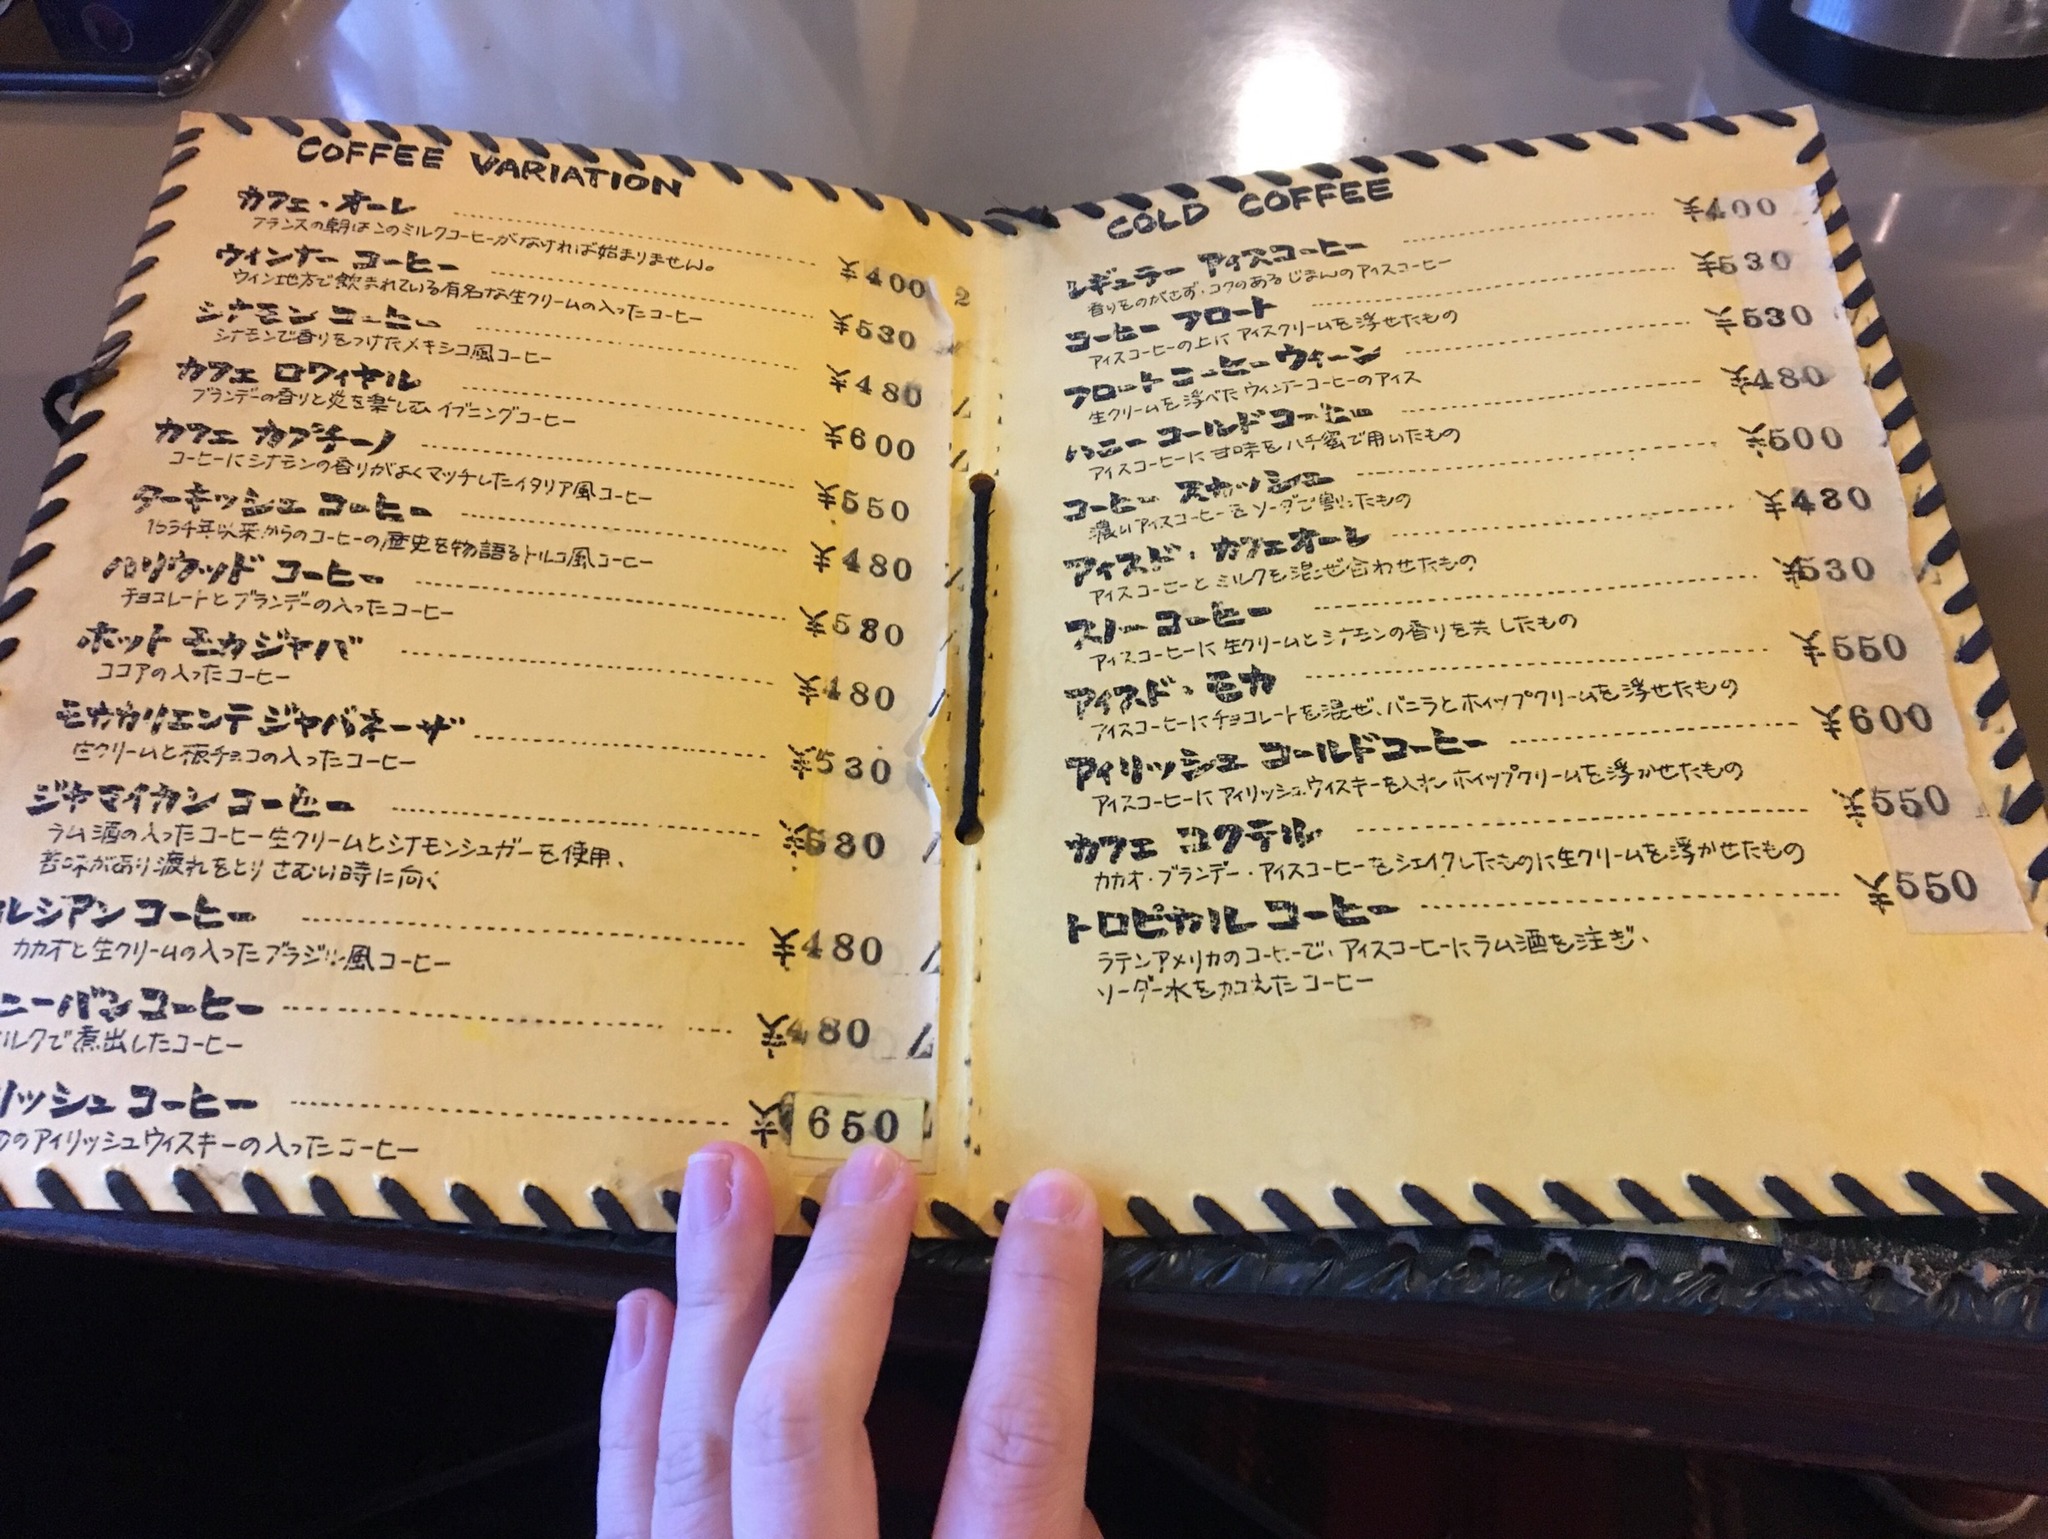 COFFEE VARIATION
カフェ・オーレ ¥400
フランスの朝はこのミルクコーヒーがなければ始まりません。
ウィンナー コーヒー ¥530
ウィン地方で飲まれている有名な生クリームの入ったコーヒー
シナモン コーヒー ¥480
シナモンで香りをつけたメキシコ風コーヒー
カフェ ロワイヤル ¥600
ブランデーの香りと炎を楽しむ イブニングコーヒー
カフェ カプチーノ ¥550
コーヒーにシナモンの香りがよくマッチしたイタリア風コーヒー
ターキッシュ コーヒー ¥480
千年以来からのコーヒーの歴史を物語るトルコ風コーヒー
ハリウッド コーヒー ¥580
チョコレートとブランデーの入ったコーヒー
ホット モカ ジャバ ¥480
ココアの入ったコーヒー
モカカリエンテ ジャバネーザ ¥530
生クリームと板チョコの入ったコーヒー
ジャマイカン コーヒー
ラム酒の入ったコーヒー生クリームとシナモンシュガーを使用、
苦味があり疲れをとり さむい時に向く
ルシアン コーヒー ¥480
カカオと生クリームの入ったブラジル風コーヒー
ニーバン コーヒー ¥480
ルクで煮出したコーヒー
リッシュ コーヒー ¥650
のアイリッシュウィスキーの入ったコーヒー
COLD COFFEE
レギュラー アイスコーヒー ¥400
香りをのがさず、コクのあるじまんのアイスコーヒー
コーヒー フロート ¥530
アイスコーヒーの上に アイスクリームを浮せたもの
フロート コーヒー ウィーン ¥530
生クリームを浮べた ウィンナーコーヒーのアイス
ハニー コールド コーヒー ¥480
アイスコーヒーに 甘味を ハチ蜜で用いたもの
コーヒー スカッシュ ¥500
濃いアイスコーヒーをソーダで割ったもの
アイスド・カフェオーレ ¥480
アイスコーヒーと ミルクを混ぜ合わせたもの
スノー コーヒー ¥530
アイスコーヒーに 生クリームとシナモンの香りを したもの
アイスド・モカ ¥550
アイスコーヒーにチョコレートを混ぜ、バニラとホイップクリームを浮せたもの
アイリッシュ コールドコーヒー ¥600
アイスコーヒーに アイリッシュウィスキーを入れ ホイップクリームを浮かせたもの
カフェ コクテル ¥550
カカオ・ブランデー・アイスコーヒーをシェイクしたものに生クリームを浮かせたもの
トロピカル コーヒー ¥550
ラテンアメリカのコーヒーで、アイスコーヒーにラム酒を注ぎ、
ソーダー水を加えたコーヒー